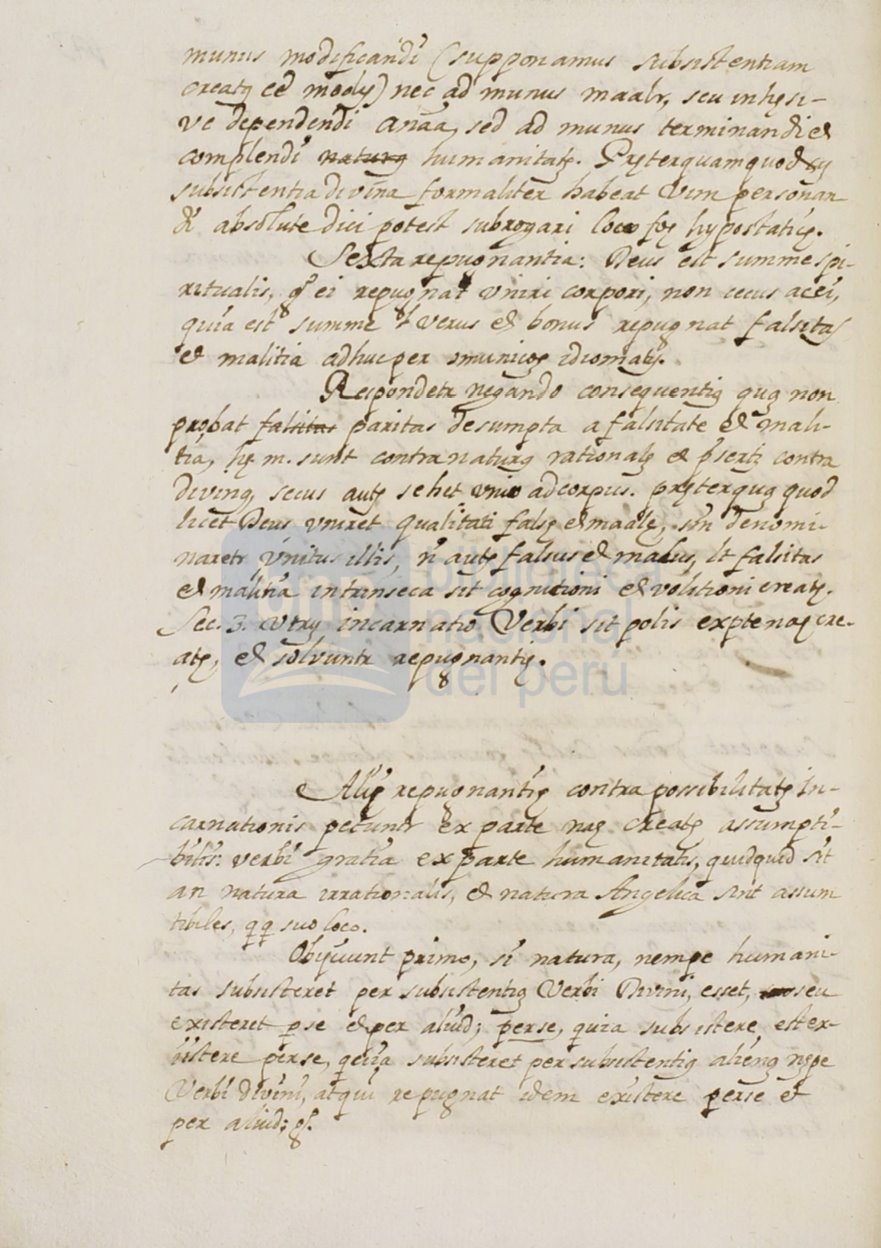 munus modificandi (supponamus subsistentiam
creatę eē modū) nec ad munus maalr, seu inhęsi-
ve dependendi anāa, sed ad munus terminandi et
complendi naturę humanitatę. Pręterquamquod
subsistentia divina formaliter habeat vim personan
di absolute dici potest subrogari loco hypostaticę.
Sexta repugnantia: Deus est summe spi-
ritualis, gº ei repugnat vniri corpori, non secus ac ei,
quia est summe verus et bonus repugnat falsitas
et malitia adhuc per idiomatū.
Respondetr negando consequentię quę non
probat falsitas paritas desumpta a falsitate et mali-
tia, hę m. sunt contra naturę rationalę et contra
divinę, secus autę se het vnio ad corpus. pręterquę quod
licet Deus vniret qualitati falsę et maalę, denomi-
naretr vnitus illis, n̄ autę falsus et malus, falsitas
et malitia intrinseca sit cognitioni et volitioni creatę.
Sec. 3. Utrū incarnatio Verbi sit ex pte cre-
atę, et solvuntr repugnantię.
Alię repugnantię contra possibilitatę In-
carnationis petuntr ex parte creatę assumpti-
bilis: verbi gratia ex parte humanitatis, quidquid sit
an natura irrationalis, et natura Angelica sint assum
tibiles, suo loco.
Obijciunt primo, si natura, nempe humani-
tas subsisteret per subsistentię Verbi Divini, esset, seu
existeret p se et per aliud; per se, quia subsistere est ex-
istere per se, quia subsisteret per subsistentię alienę nępe
Verbi divini, atqui repugnat idem existere per se et
per aliud; gº.
biblioteca
nacional
del perú